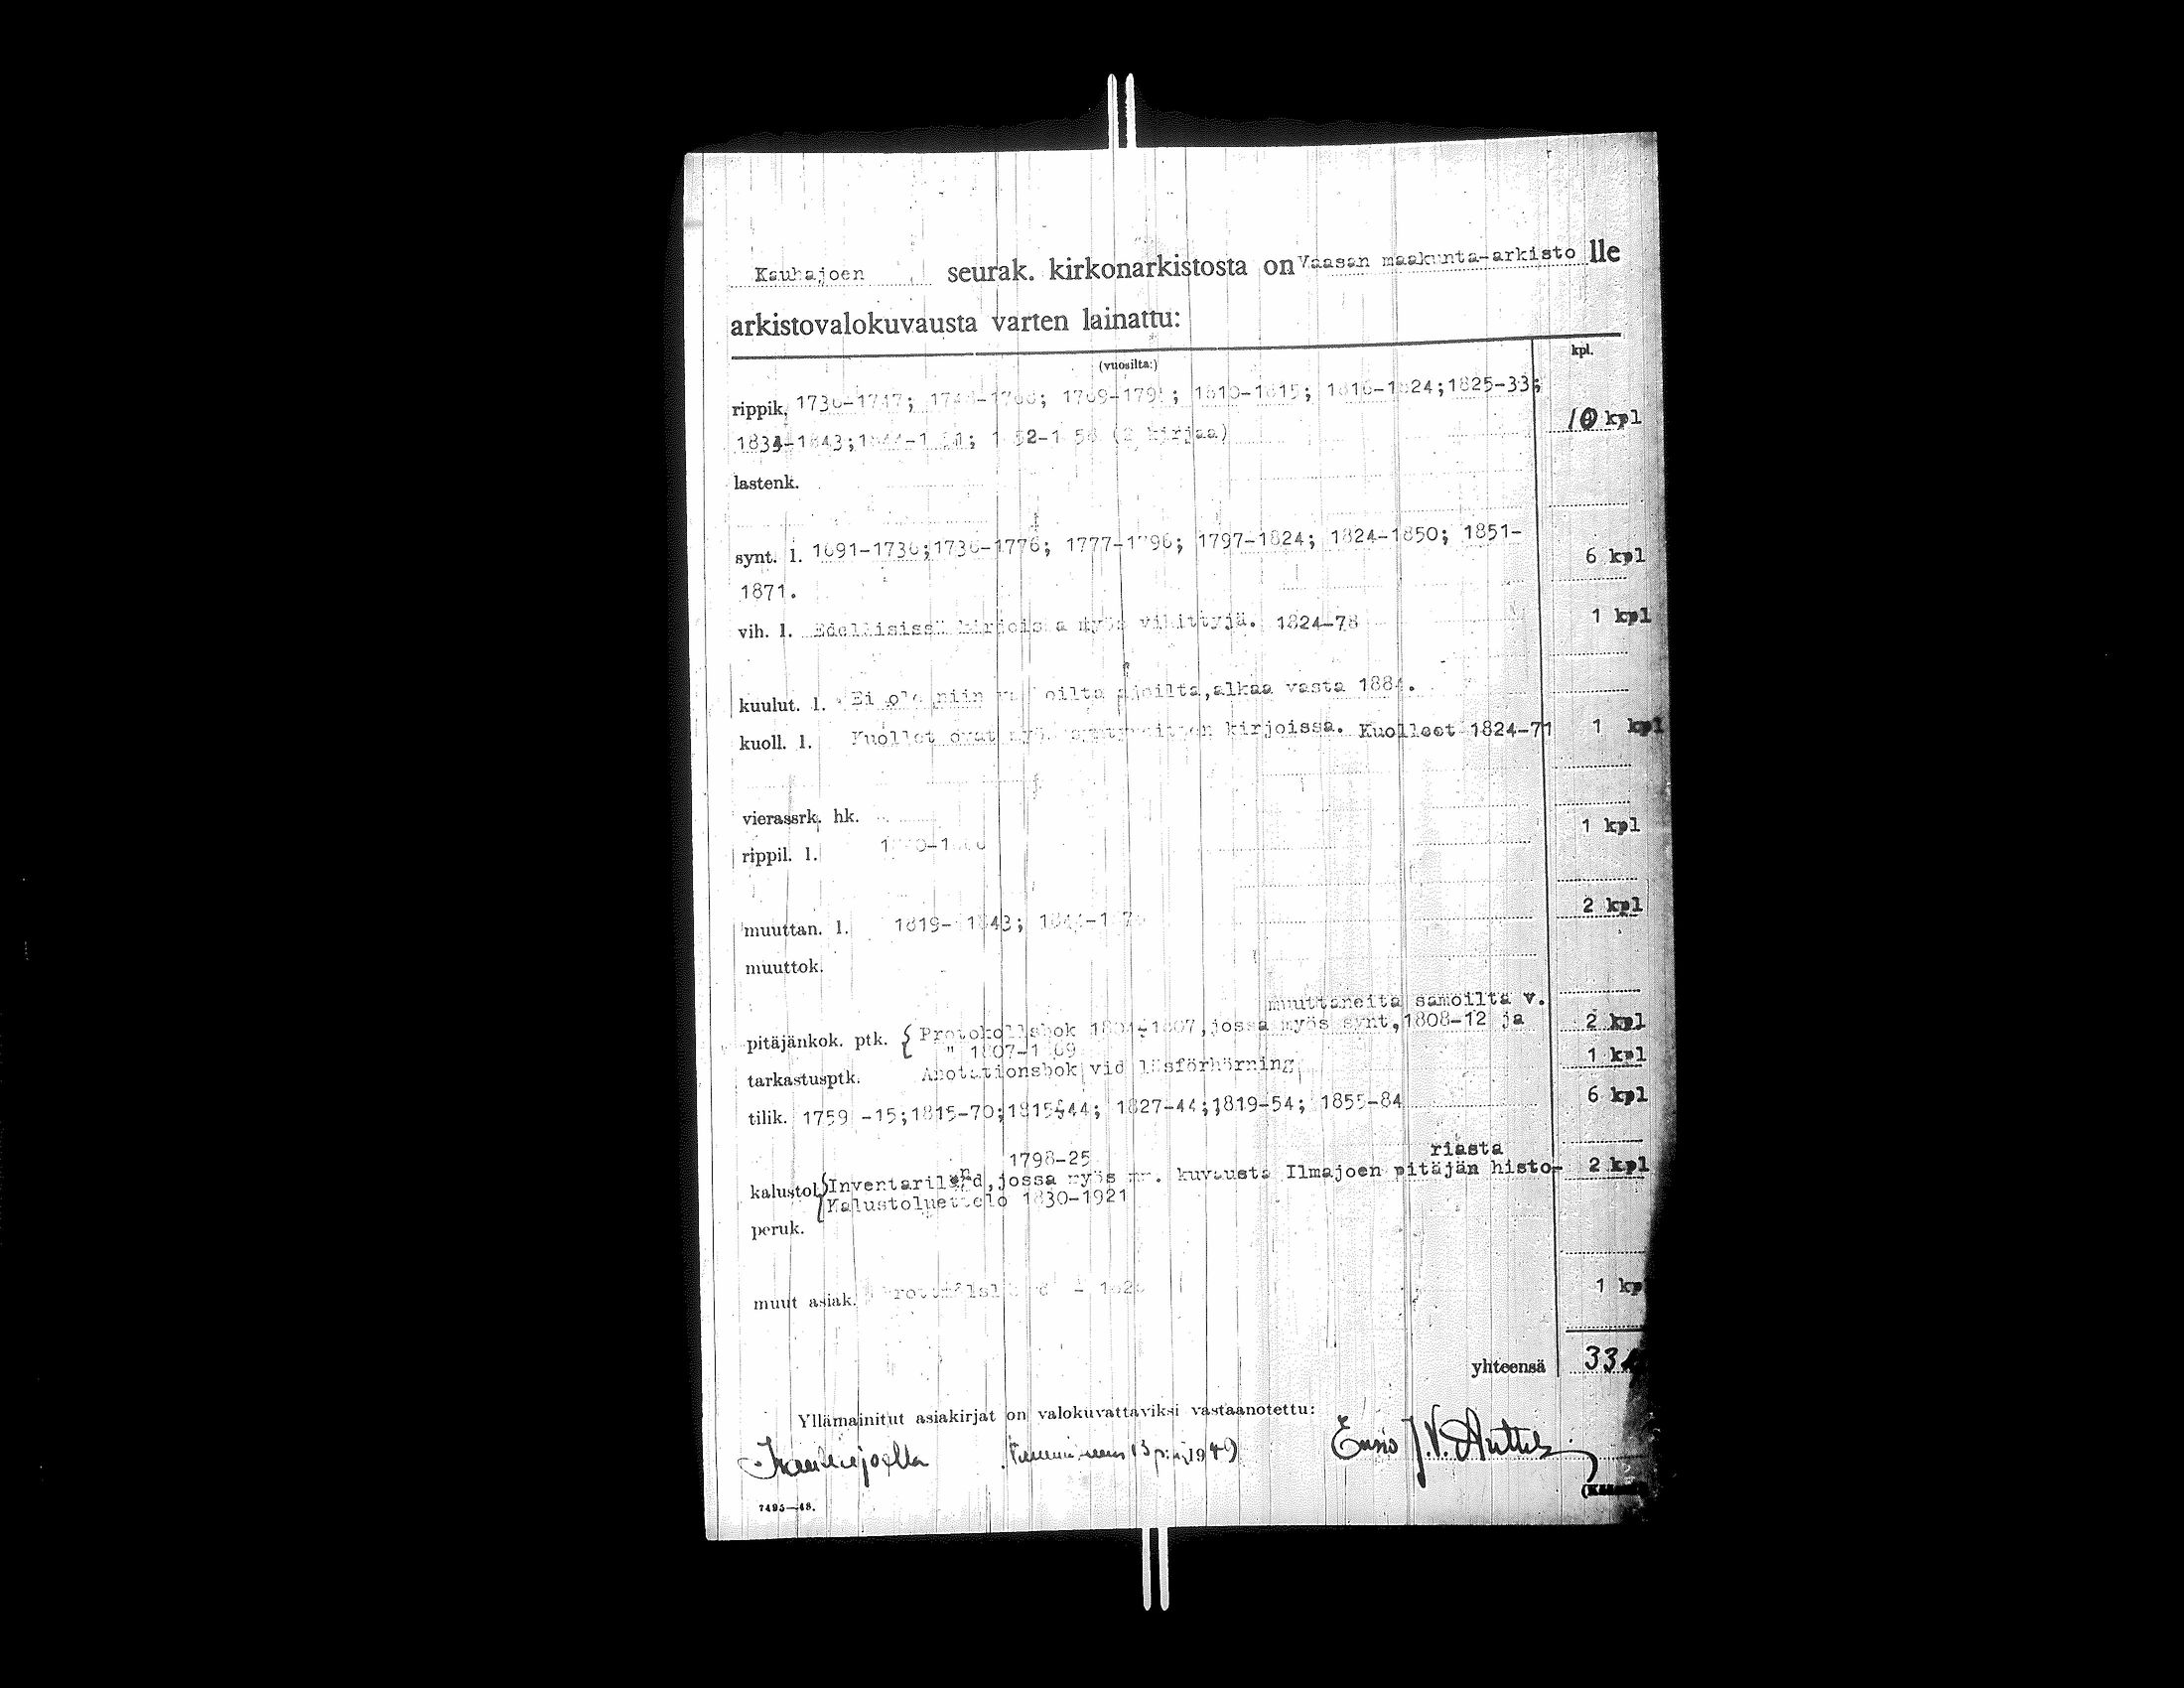 Kauhajoen seurak. kirkonarkistosta on Vaasan maakunta-arkisto lle
arkistovalokuvausta varten lainattu:
(vuosilta:) kpl.
rippik. 1736-1747; 1810-1815; 1816-1824;1825-33;
1834-1843; (2 kirjaa) 10 kpl
lastenk.
synt. l. 1691-1736;1736-1776; 1777-1796; 1797-1824; 1824-1850; 1851-
1871. 6 kpl
vih. l. Edellisissä kirjoissa myös vihittyjä. 1824-78 1 kpl
kuulut. l. Ei ole niin vanhoilta ajoilta,alkaa vasta 1884.
kuoll. l. Kuollet ovat myös syntyneitten kirjoissa. Kuolleet 1824-71 1 kpl
vierassrk. hk.
rippil. l. 1 kpl
muuttan. l. 1819-1843; 2 kpl
muuttok.
muuttaneita samoilta v.
pitäjänkok. ptk. Protokollsbok 1804-1807,jossa myös synt,1808-12 ja 2 kpl
" 1807-1869
tarkastusptk. Anotationsbok vid läsförhörning 1 kpl
tilik. 1759 -15;1815-70;1815-44; 1827-44;1819-54; 1855-84 6 kpl
1798-25 riasta
kalustol. Inventarilängd,jossa myös mm. kuvausta Ilmajoen pitäjän histo- 2 kpl
Kalustoluettelo 1830-1921
peruk.
muut asiak. 1 kpl
yhteensä 33
Yllämainitut asiakirjat on valokuvattaviksi vastaanotettu:
Kauhajoella 13 p:nä 1949 Ensio J.V. Anttila
7495—48.